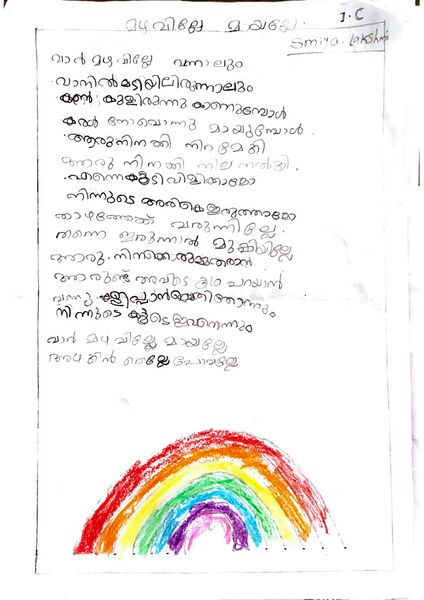 മഴവില്ലേ മായല്ലേ
I.C
Smiya. Lakshmi
വാൻ മഴവില്ലേ വന്നാലും
വാനിൽ മടിയിലിരുന്നാലും
കൺ കുളിരുന്നു കാണുമ്പോൾ
കരൾ നോവൊന്നു മായുമ്പോൾ.
ആരു നിനക്കീ നിറമേകി
ആരു നിനക്കീ നില നൽകി.
എന്നെകൂടി വിളിക്കാമോ
നിന്നുടെ അരികെ ഇരുത്താമോ
താഴത്തേക്ക് വരുന്നില്ലേ.
തന്നെ ഇരുന്നാൽ മുഷിയില്ലേ
ആരു. നിനക്കൊരു
ആരുണ്ട് അവിടെ കഥ പറയാൻ
വന്നു
നിന്നുടെ കൂടെ
വാൻ മഴവില്ലേ മായല്ലേ
അഴകിൻ തെല്ലേ പോവല്ലേ